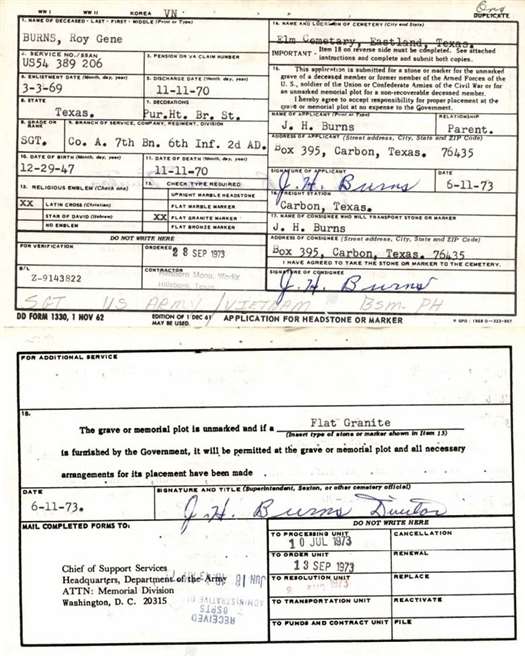 WW I WW II KOREA VN
DUPLICATE
1. NAME OF DECEASED - LAST - FIRST - MIDDLE (Print or Type)
BURNS, Roy Gene
2. SERVICE NO./SSAN
US54 389 206
3. PENSION OR VA CLAIM NUMBER
4. ENLISTMENT DATE (Month, day, year)
3-3-69
5. DISCHARGE DATE (Month, day, year)
11-11-70
6. STATE
Texas.
7. DECORATIONS
Pur.Ht. Br. St.
8. GRADE OR RANK
SGT.
9. BRANCH OF SERVICE, COMPANY, REGIMENT, DIVISION
Co. A. 7th Bn. 6th Inf. 2d AD.
10. DATE OF BIRTH (Month, day, year)
12-29-47
11. DATE OF DEATH (Month, day, year)
11-11-70
12. RELIGIOUS EMBLEM (Check one)
XX LATIN CROSS (Christian)
STAR OF DAVID (Hebrew)
NO EMBLEM
13. CHECK TYPE REQUIRED
UPRIGHT MARBLE HEADSTONE
FLAT MARBLE MARKER
XX FLAT GRANITE MARKER
FLAT BRONZE MARKER
DO NOT WRITE HERE
FOR VERIFICATION
ORDERED
28 SEP 1973
B/L
Z-9143822
CONTRACTOR
14. NAME AND LOCATION OF CEMETERY (City and State)
Elm Cemetary, Eastland, Texas.
IMPORTANT - Item 18 on reverse side must be completed. See attached instructions and complete and submit both copies.
15. This application is submitted for a stone or marker for the unmarked
grave of a deceased member or former member of the Armed Forces of the
U. S., soldier of the Union or Confederate Armies of the Civil War or for
an unmarked memorial plot for a non-recoverable deceased member.
I hereby agree to accept responsibility for proper placement at the
grave or memorial plot at no expense to the Government.
NAME OF APPLICANT (Print or Type)
J. H. Burns
RELATIONSHIP
Parent.
ADDRESS OF APPLICANT (Street address, City, State and ZIP Code)
Box 395, Carbon, Texas. 76435
SIGNATURE OF APPLICANT
J. H. Burns
DATE
6-11-73
16. FREIGHT STATION
Carbon, Texas.
17. NAME OF CONSIGNEE WHO WILL TRANSPORT STONE OR MARKER
J. H. Burns
ADDRESS OF CONSIGNEE (Street address, City, State and ZIP Code)
Box 395, Carbon, Texas. 76435
I HAVE AGREED TO TAKE THE STONE OR MARKER TO THE CEMETERY.
SIGNATURE OF CONSIGNEE
J. H. Burns
SGT US ARMY/VIETNAM BSM-PH
DD FORM 1330, 1 NOV 62
EDITION OF 1 DEC 61 MAY BE USED.
APPLICATION FOR HEADSTONE OR MARKER
FOR ADDITIONAL SERVICE
18.
The grave or memorial plot is unmarked and if a Flat Granite
(Insert type of stone or marker shown in Item 13)
is furnished by the Government, it will be permitted at the grave or memorial plot and all necessary
arrangements for its placement have been made
DATE
6-11-73.
SIGNATURE AND TITLE (Superintendent, Sexton, or other cemetery official)
J. H. Burns
MAIL COMPLETED FORMS TO:
Chief of Support Services
Headquarters, Department of the Army
ATTN: Memorial Division
Washington, D. C. 20315
RECEIVED
DO NOT WRITE HERE
TO PROCESSING UNIT
10 JUL 1973
CANCELLATION
TO ORDER UNIT
13 SEP 1973
RENEWAL
TO RESOLUTION UNIT
REPLACE
TO TRANSPORTATION UNIT
REACTIVATE
TO FUNDS AND CONTRACT UNIT
FILE